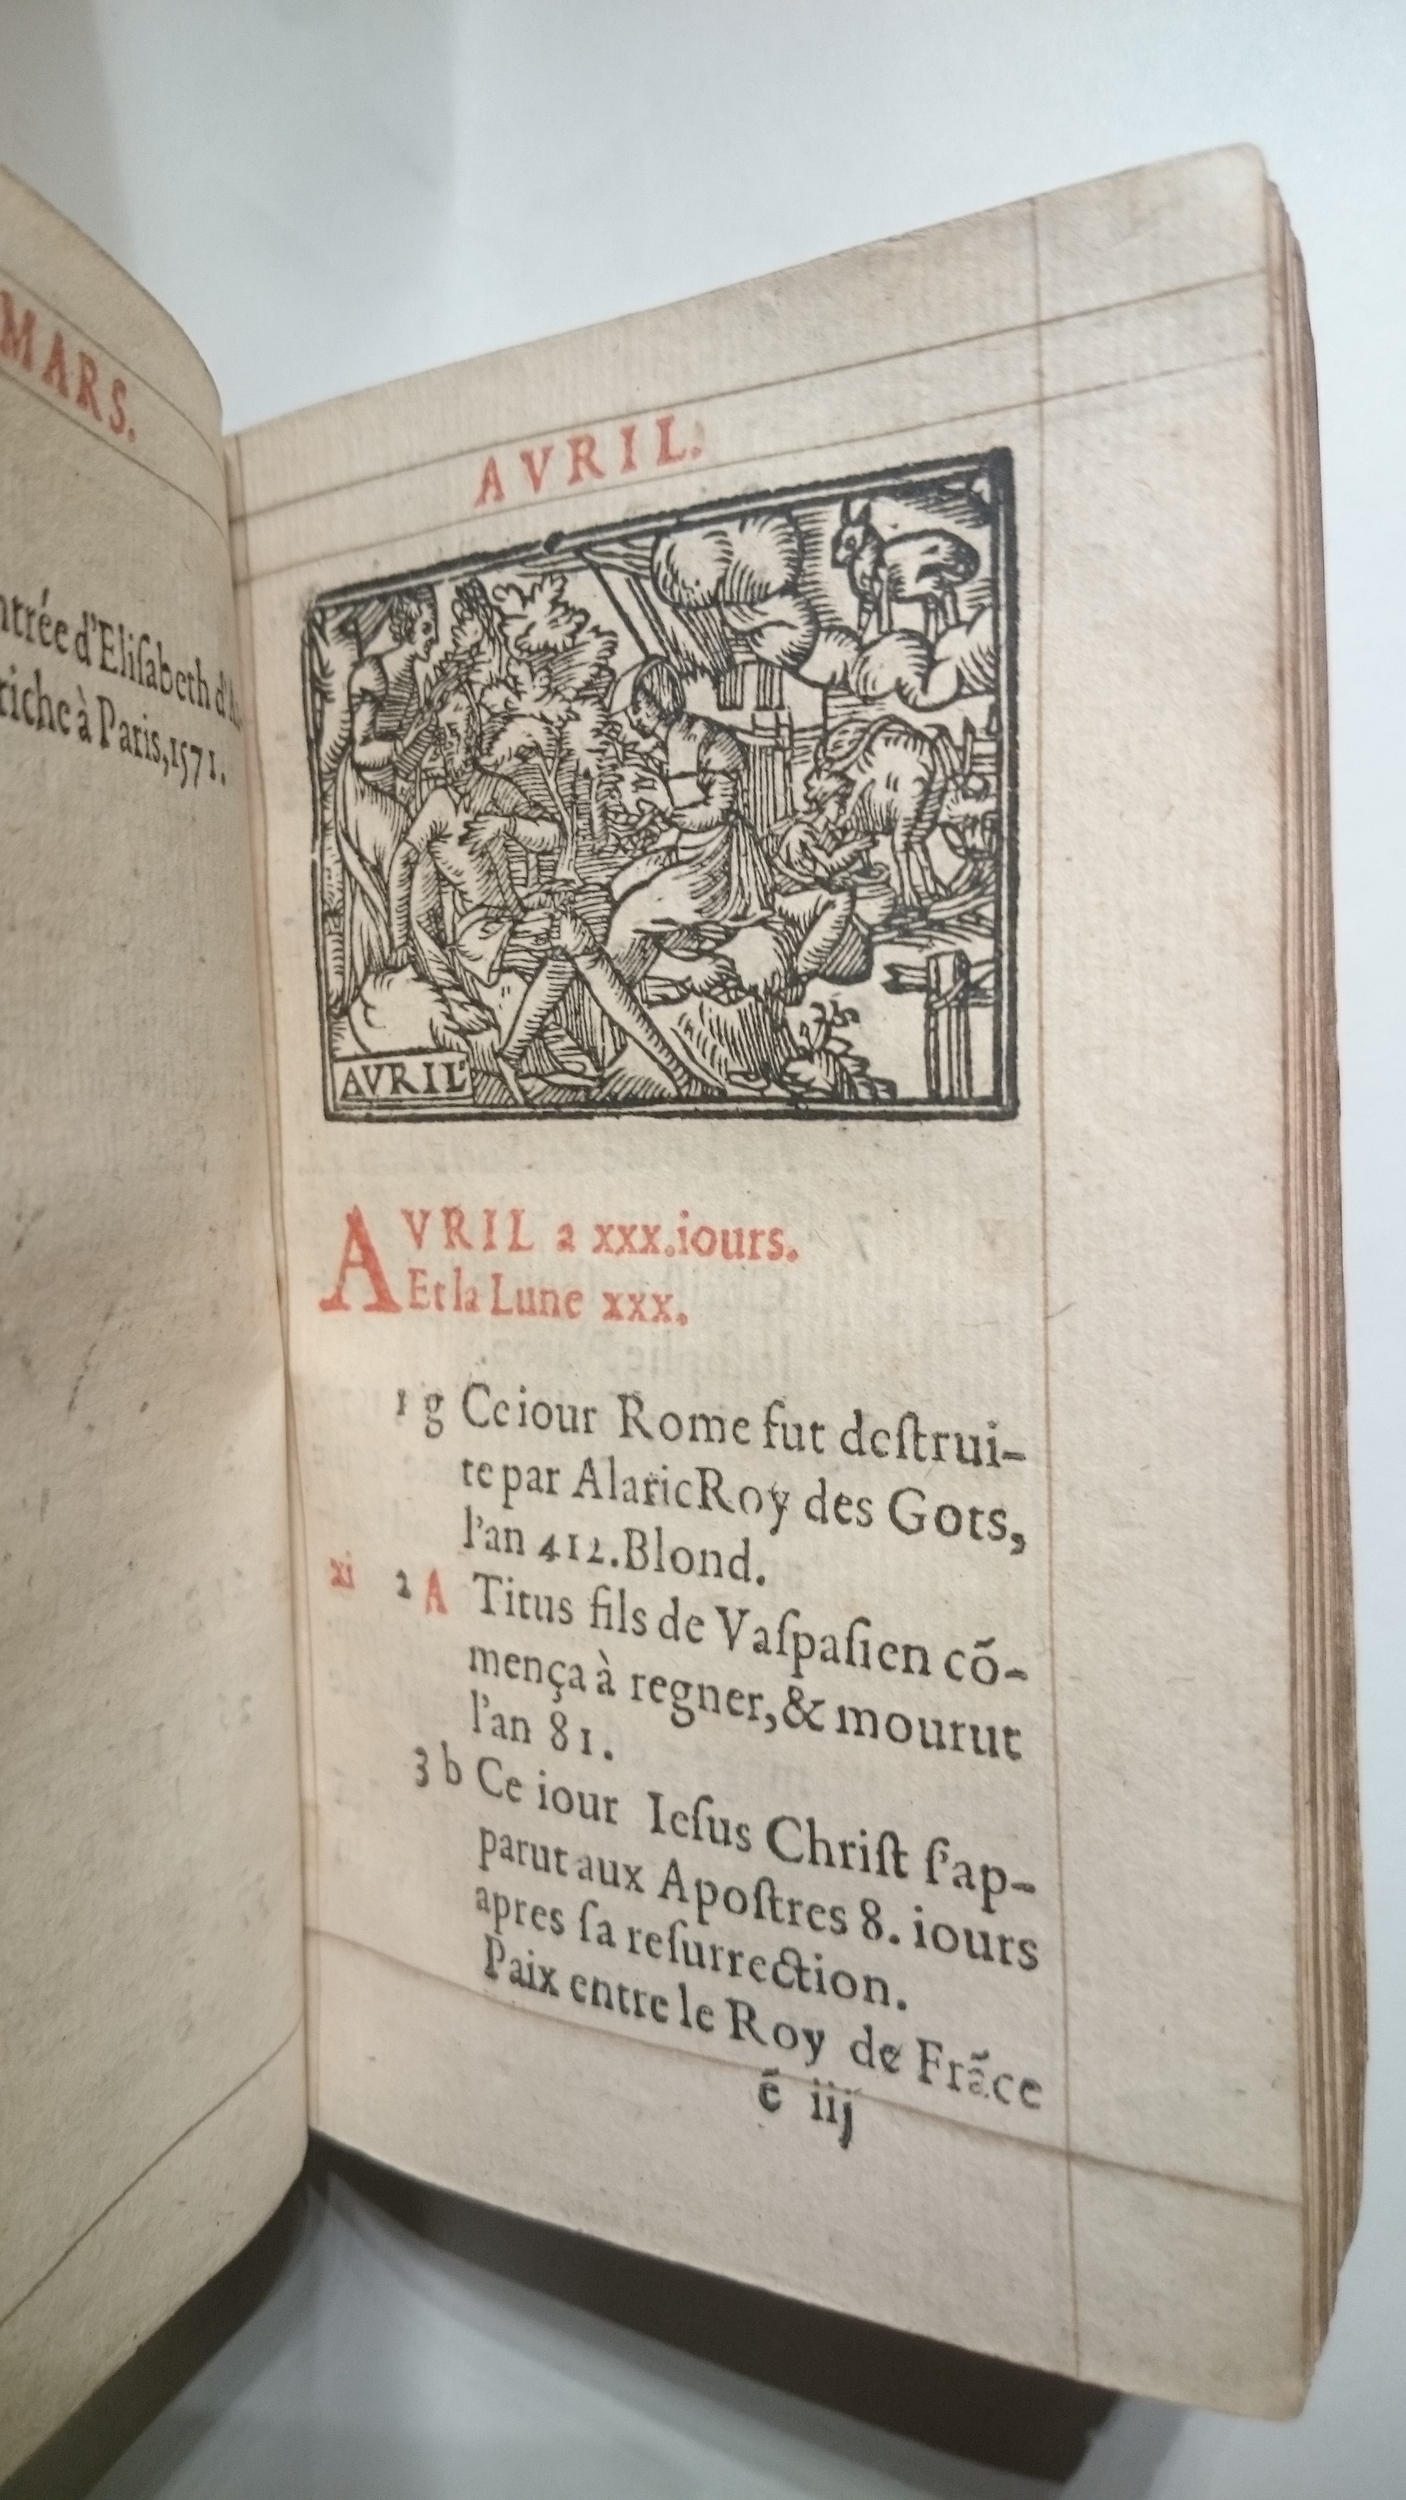 MARS.
ntrée d'Eliſabeth d'A
riche à Paris, 1571.
AVRIL.
AVRIL
AVRIL a xxx. iours.
Et la Lune xxx.
1 g Ce iour Rome fut deſtrui-
te par Alaric Roy des Gots,
l'an 412. Blond.
xi 2 A Titus fils de Vaſpaſien cõ-
mença à regner, & mourut
l'an 81.
3 b Ce iour Ieſus Chriſt ſ'ap-
parut aux Apoſtres 8. iours
apres ſa reſurrection.
Paix entre le Roy de Frãce
ẽ iij